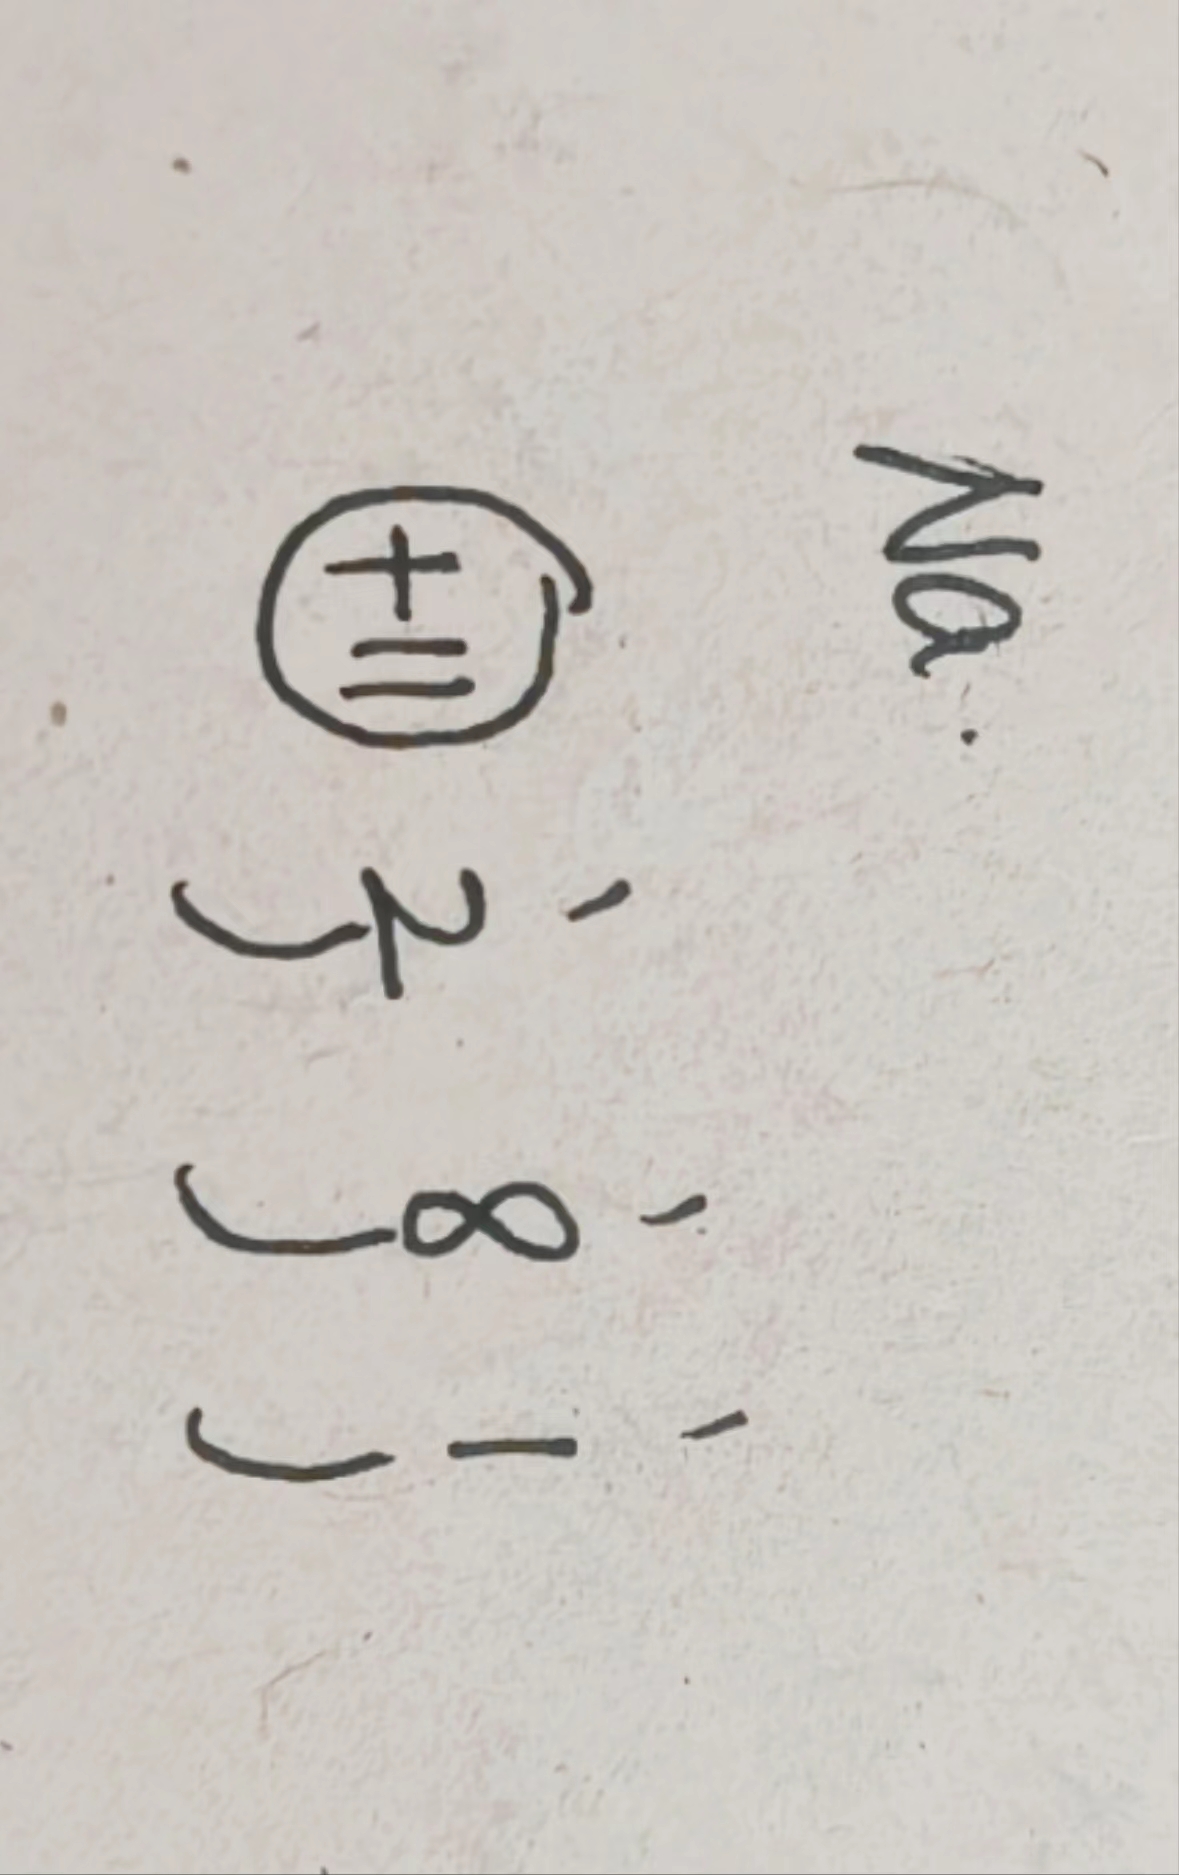 Na.
+11 ) 2 ) 8 ) 1